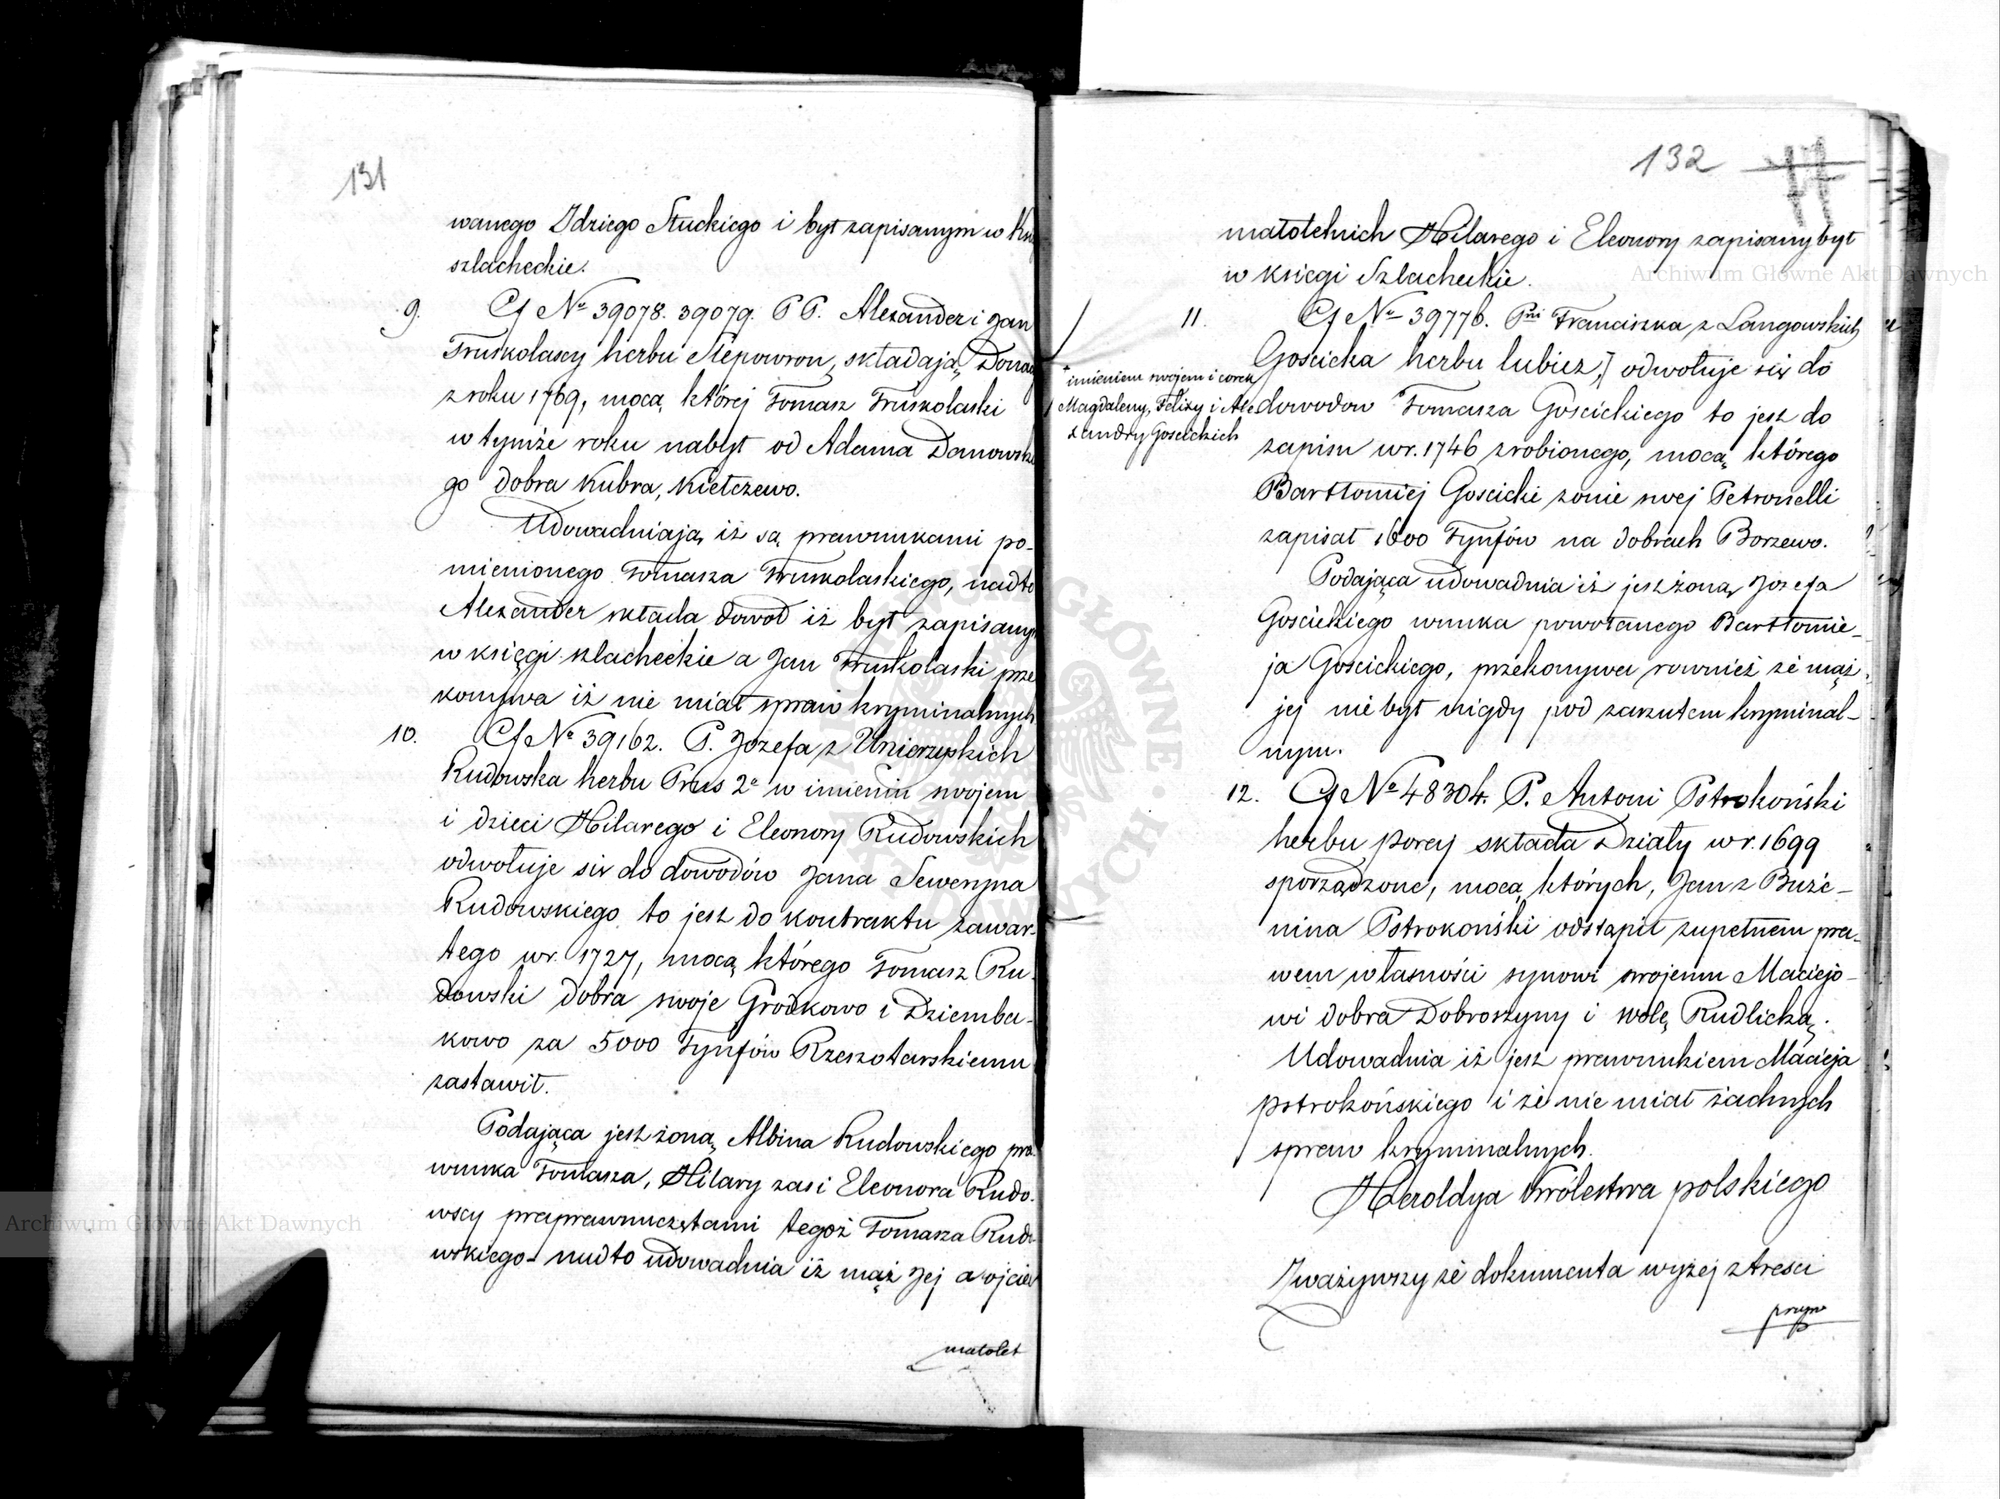 131
wanego Idziego Stuckiego i był zapisanym w
szlacheckie.
9. Cf No 39078. 39079. PP. Alexander i Jan
Truskolascy herbu Slepowron, składają
z roku 1769, mocą której Tomasz Truskolaski
w tymże roku nabył od Adama Danowskie
go dobra Kubra, Kiełczewo.
Udowadniają iż są prawnukami po-
mienionego Tomasza Truskolaskiego, nadto
Alexander składa dowod iż był zapisany
w księgi szlacheckie a Jan Truskolaski prze
konywa iż nie miał spraw kryminalnych
10. Cf No 39162. P. Jozefa z Unierzyskich
Rudowska herbu Prus 2o w imieniu swojem
i dzieci Hilarego i Eleonory Rudowskich
odwołuje się do dowodów Jana Seweryna
Rudowskiego to jest do kontraktu zawar-
tego w r. 1727, mocą którego Tomasz Ru-
dowski dobra swoje Grodkowo i Dziemba-
kowo za 5000 Tynfów Rzeszotarskiemu
zastawił.
Podająca jest żoną Albina Rudowskiego pra
wnuka Tomasza, Hilary zas i Eleonora Rudo-
wscy praprawnuczętami tegoż Tomasza Rudo
wskiego – nadto udowadnia iż mąż Jej a ojciec
małolet
132
małoletnich Hilarego i Eleonory zapisany był
w księgi Szlacheckie.
11. Cf No 39776. Pni Franciszka z Langowskich
Goscicka herbu lubicz,] odwołuje się do
imieniem swojem i corek
Magdaleny, Felixy i Ale
xandry Goscickich
dowodow Tomasza Goscickiego to jest do
zapisu w r. 1746 zrobionego, mocą którego
Bartłomiej Goscicki zonie swej Petronelli
zapisał 1600 Tynfów na dobrach Borzewo.
Podająca udowadnia iż jest żoną Jozefa
Goscickiego wnuka powołanego Bartłomie-
ja Goscickiego, przekonywa rownież że mąż
jej nie był nigdy pod zarzutem kryminal-
nym.
12. Cf No 48304. P. Antoni Pstrokoński
herbu poraj składa Działy w r. 1699
sporządzone, mocą których, Jan z Buże-
nina Pstrokoński odstąpił zupełnem pra-
wem własności synowi swojemu Maciejo-
wi dobra Dobroszyny i wolę Rudlicką.
Udowadnia iż jest prawnukiem Macieja
pstrokońskiego i że nie miał żadnych
spraw kryminalnych.
Heroldya Królestwa polskiego
Zważywszy że dokumenta wyżej z tresci
przyw
Archiwum Główne Akt Dawnych
Archiwum Główne Akt Dawnych
ARCHIWUM GŁÓWNE AKT DAWNYCH